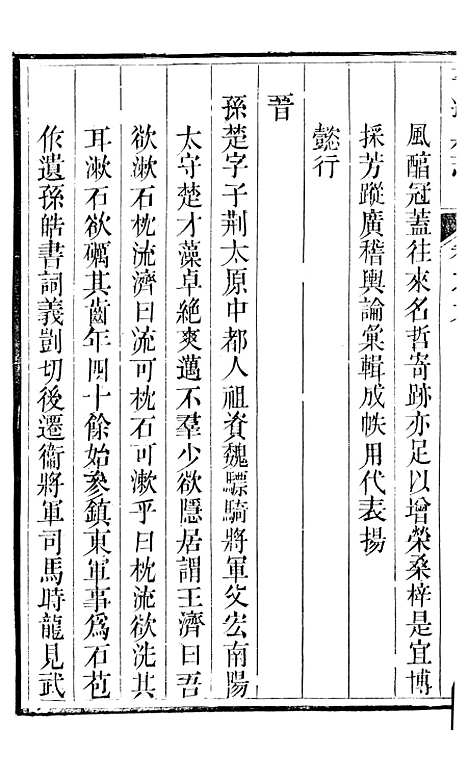 風醕冠蓋往來名哲寄跡亦足以增榮桑梓是宜博
採芳蹤廣稽輿論彙輯成帙用代表揚
懿行
晉
孫楚字子荆太原中都人祖資魏驃騎將軍父宏南陽
太守楚才藻卓絕爽邁不羣少欲隱居謂王濟曰吾
欲漱石枕流濟曰流可枕石可漱乎曰枕流欲洗其
耳漱石欲礪其齒年四十餘始參鎮東軍事爲石苞
作遺孫皓書詞義剴切後遷衞將軍司馬時龍見武